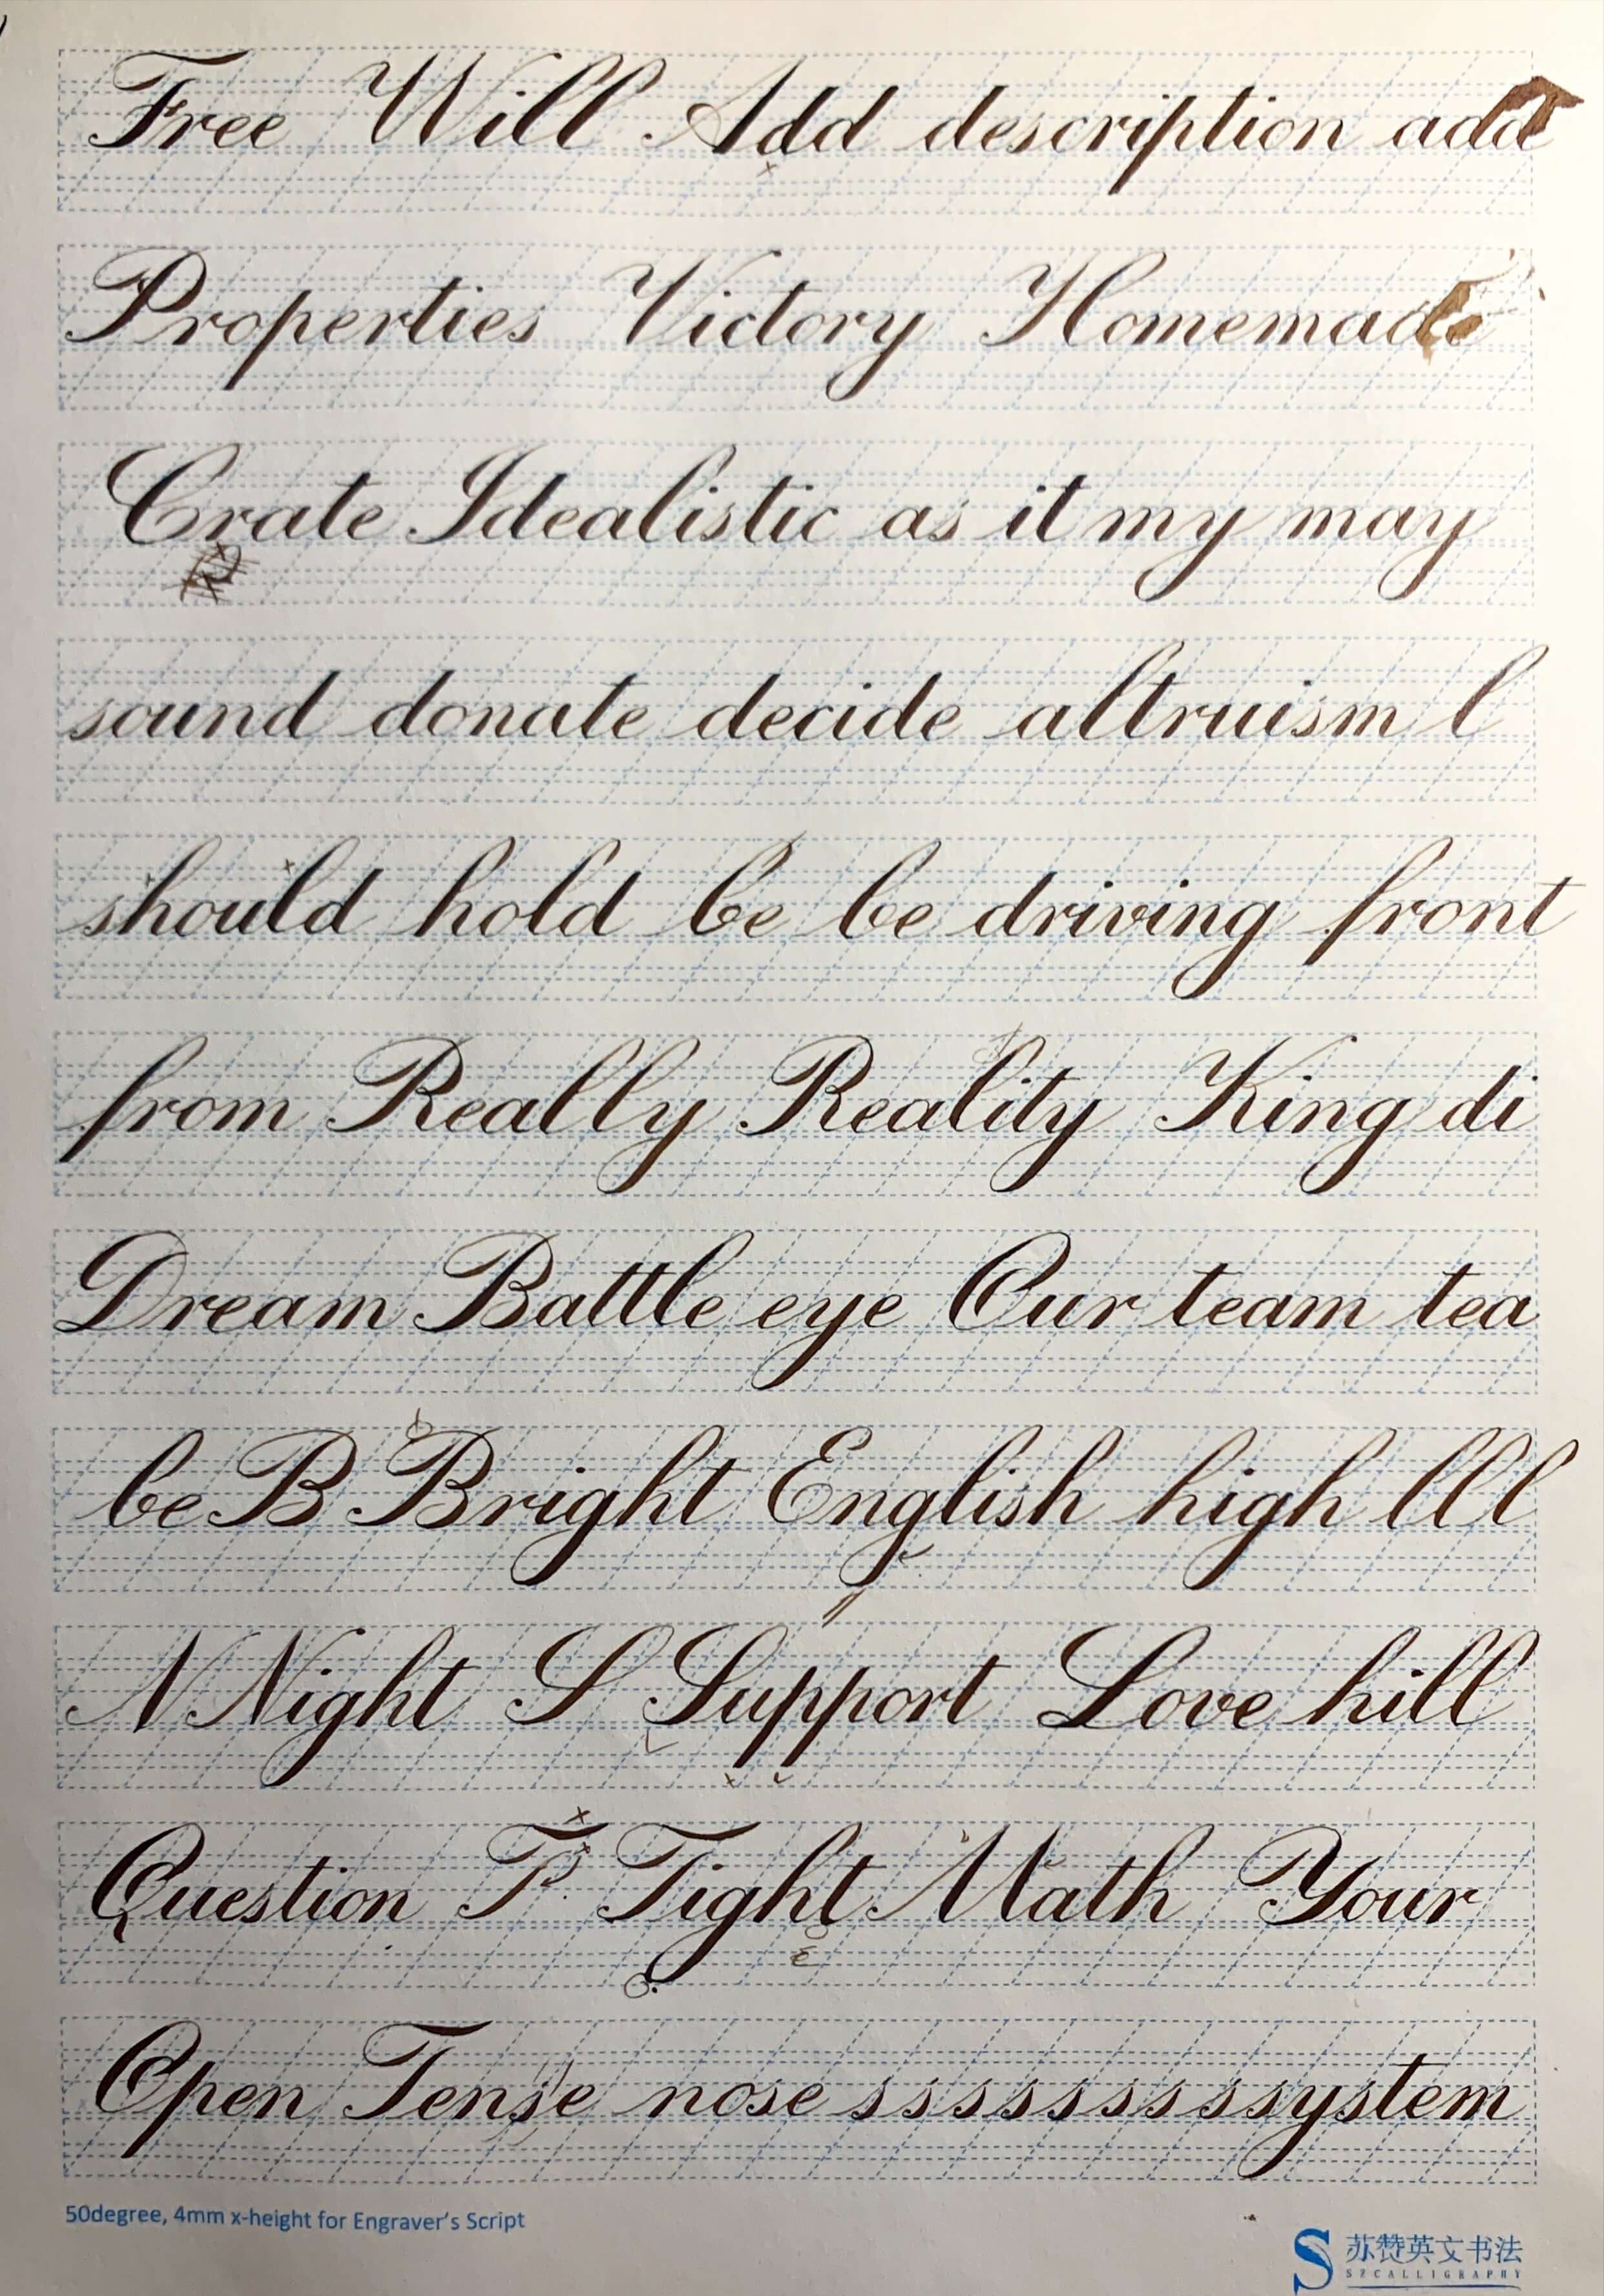 Free Will Add description add
Properties Victory Homemade
Crate Idealistic as it my may
sound donate decide altruism l
should hold be be driving front
from Really Reality King di
Dream Battle eye Our team tea
be B Bright English high lll
N Night S Support Love hill
Question T Tight Math Your
Open Tense nose sssssssssystem
50degree, 4mm x-height for Engraver's Script
S 苏赞英文书法
SZCALLIGRAPHY